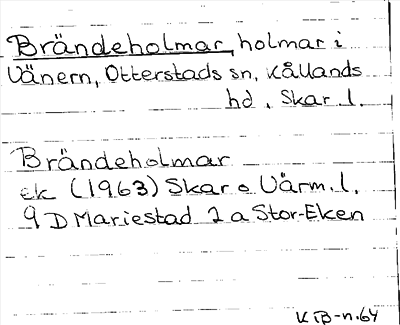 Brändeholmar, holmar i
Vänern, Otterstads sn, Kållands
hd, Skar. l.
Brändeholmar
ek (1963) Skar o Värm. l.
9 D Mariestad 2 a Stor-Eken
KB-n. 64